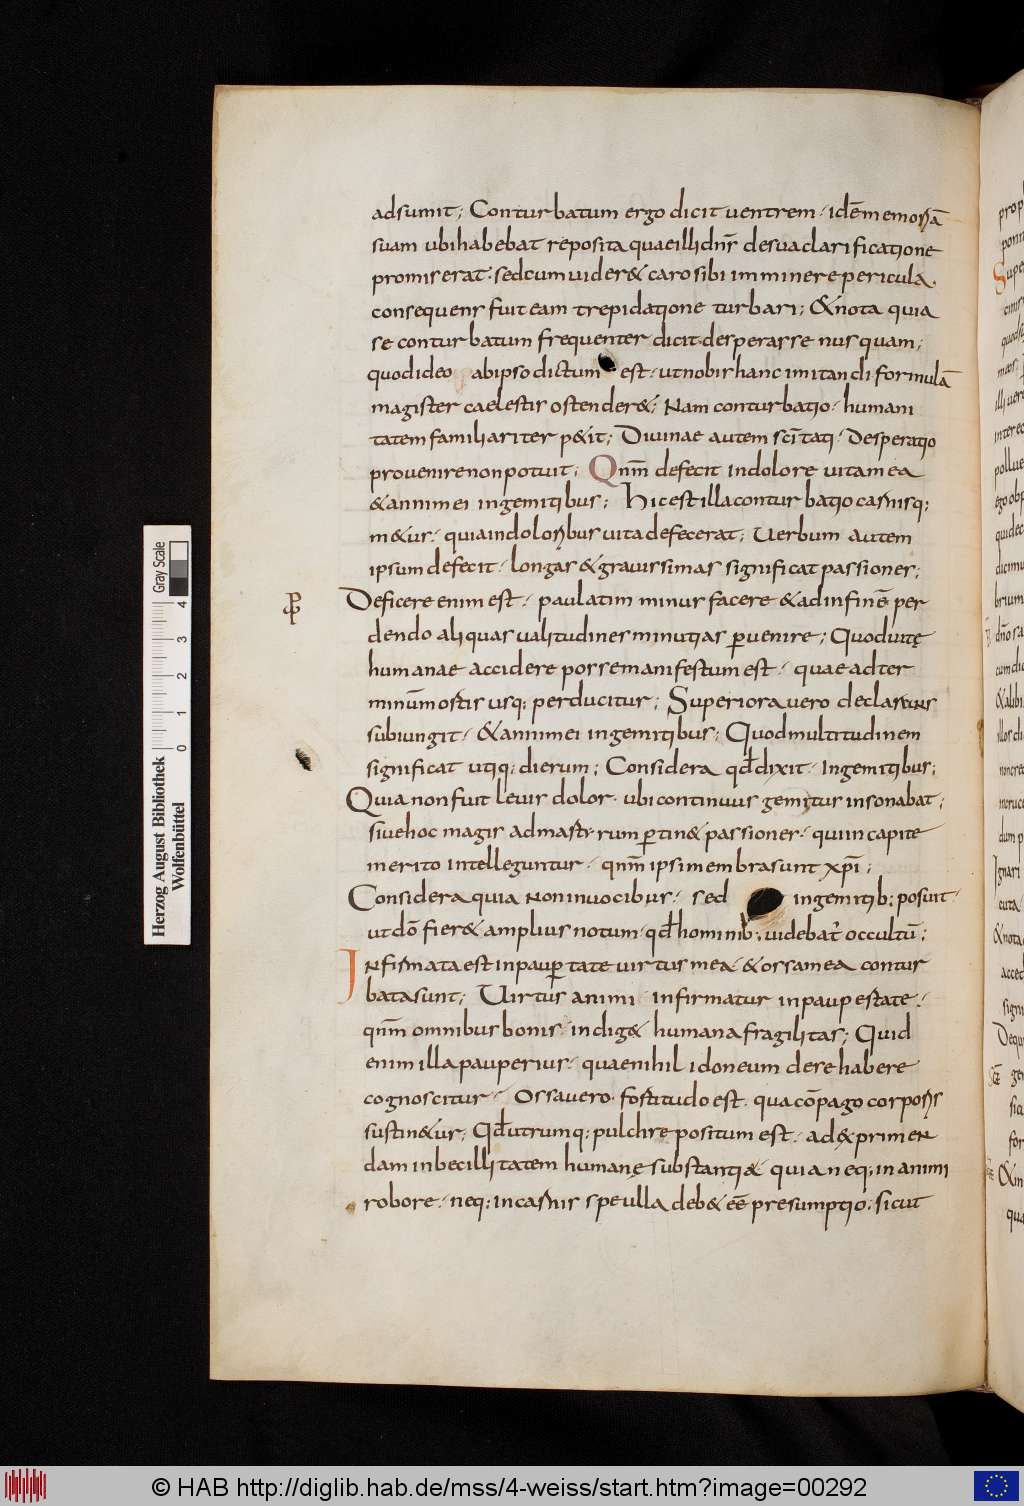 adsumit; Conturbatum ergo dicit uentrem· idē memoriā
suam ubi habebat reposita quae illi dn̄s de sua clarificatione
promiserat· sed cum uider& caro sibi imminere pericula·
consequens fuit eam trepidatione turbari; & nota quia
se conturbatum frequenter dicit· desperasse nusquam;
quod ideo ab ipso dictum est· ut nobis hanc imitandi formulā
magister caelestis ostender&; Nam conturbatio· humani
tatem familiariter p&it; Diuinae autem sc̄itati· Desperatio
prouenire non potuit; Qnm̄ defecit in dolore uita mea
& anni mei in gemitibus; Hic est illa conturbatio carnisq;
m&us· quia in doloribus uita defecerat; Uerbum autem
ipsum defecit· longas & grauissimas significat passiones;
Deficere enim est· paulatim minus facere & ad infinē per
dendo aliquas ualitudines minutias ꝑuenire; Quod uitę
humanae accidere posse manifestum est· quae ad ter
minū mortis usq; perducitur; Superiora uero declarans
subiungit· & anni mei in gemitibus; Quod multitudinem
significat utiq; dierum; Considera qd̄ dixit· In gemitibus;
Quia non fuit leuis dolor· ubi continuus gemitus insonabat;
siue hoc magis ad martirum ꝑtin& passiones· qui in capite
merito intelleguntur· qnm̄ ipsi membra sunt xp̄i;
Considera quia non in uocibus· sed in gemitib; posuit·
ut dō fier& amplius notum· qd̄ hominib; uidebat̄ occultū;
Infirmata est in pauꝑtate uirtus mea· & ossa mea contur
bata sunt; Uirtus animi infirmatur in paupertate·
qnm̄ omnibus bonis· indig& humana fragilitas; Quid
enim illa pauperius· quae nihil idoneum de re habere
cognoscitur· Ossa uero· fortitudo est· qua cōpago corporis
sustin&ur; Qd̄ utrumq; pulchre positum est· ad exprimen
dam inbecillitatem humanę substantiae· quia neq; in animi
robore· neq; in carnis spe ulla deb& eē presumptio; sicut
Herzog August Bibliothek
Wolfenbüttel
0 1 2 3 4
Gray Scale
© HAB http://diglib.hab.de/mss/4-weiss/start.htm?image=00292